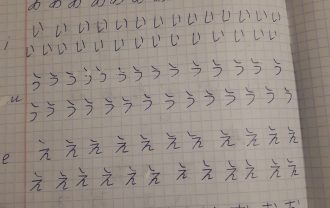 i い い い い い い い い い い い い い い
い い い い い い い い い い い い い
u う う う う う う う う う う う う う う
う う う う う う う う う う う う う う
e え え え え え え え え え え え
え え え え え え え え え え え え